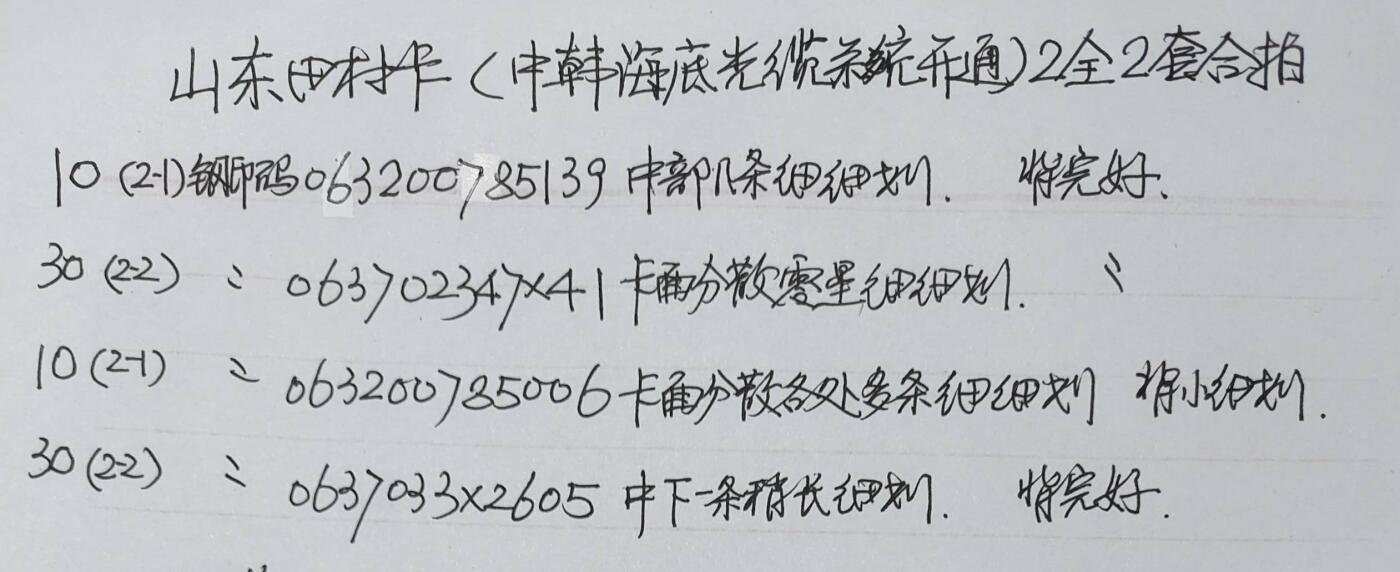 山东田村卡(中韩海底光缆系统开通)2全2套合拍
10(2-1)钢印码063200785139中部几条细细划. 背完好.
30(2-2) 〃 063702347×41卡面分散零星细细划. 〃
10(2-1) 〃 063200785006卡面分散各处多条细细划 背小细划.
30(2-2) 〃 0637033×2605中下一条稍长细划. 背完好.